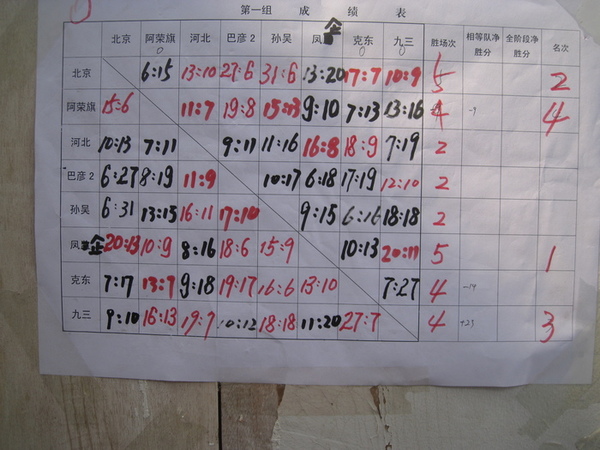 第一组 成绩表
北京 阿荣旗 河北 巴彦2 孙吴 凤企 克东 九三 胜场次 相等队净胜分 全阶段净胜分 名次
北京 6:15 13:10 27:6 31:6 13:20 17:7 10:9 5 2
阿荣旗 15:6 11:7 19:8 15:13 9:10 7:13 13:16 4 -9 4
河北 10:13 7:11 9:11 11:16 16:8 18:9 7:19 2
巴彦2 6:27 8:19 11:9 10:17 6:18 17:19 12:10 2
孙吴 6:31 13:15 16:11 17:10 9:15 6:16 18:18 2
凤企 20:13 10:9 8:16 18:6 15:9 10:13 20:11 5 1
克东 7:17 13:7 9:18 19:17 16:6 13:10 7:27 4 -14
九三 9:10 16:13 19:7 10:12 18:18 11:20 27:7 4 +23 3